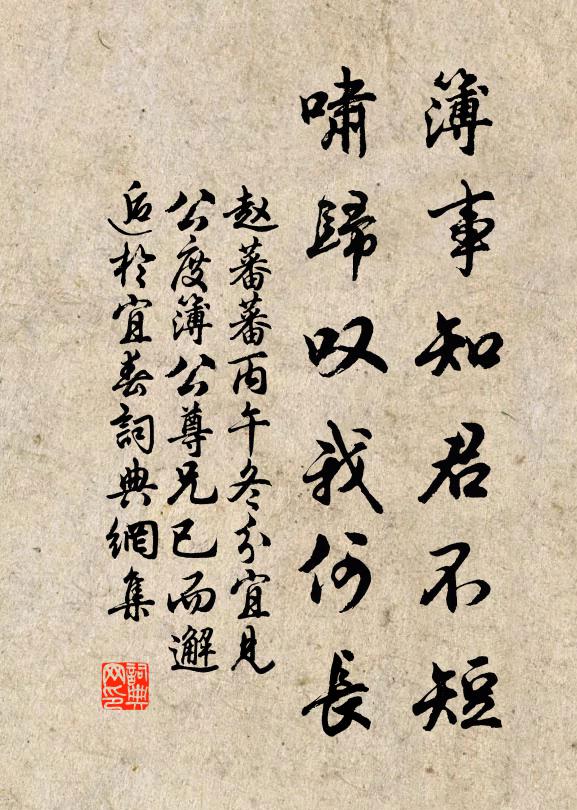 簿事知君不短
嘯歸叹我何長
赵蕃蕃丙午冬分宜見
公度簿公尊兄已而邂
逅於宜春詞典網集
詞典
网印